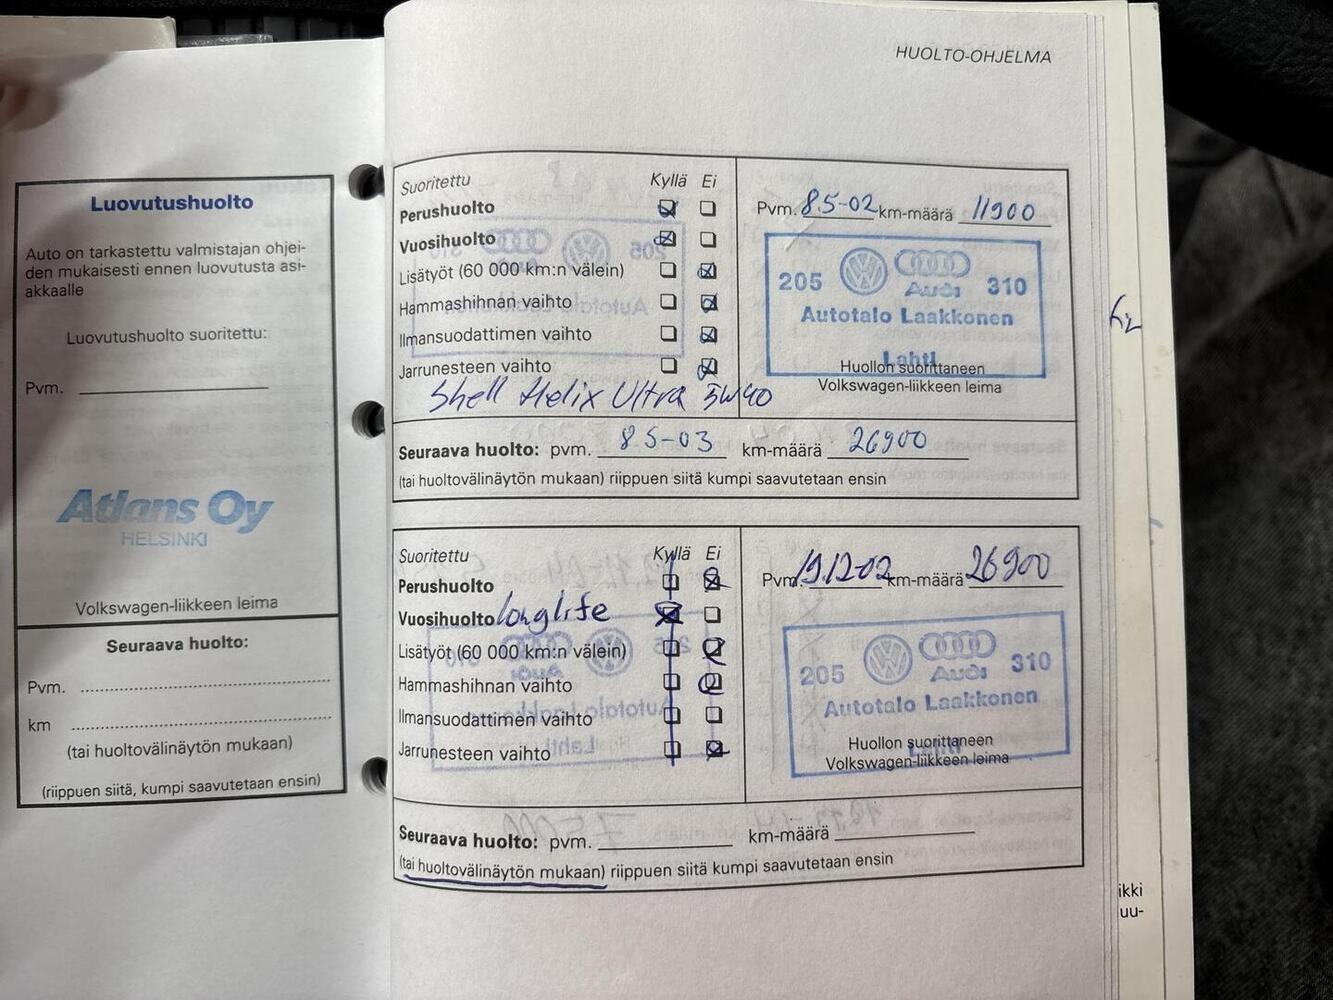 HUOLTO-OHJELMA
Luovutushuolto
Auto on tarkastettu valmistajan ohjei-
den mukaisesti ennen luovutusta asi-
akkaalle
Luovutushuolto suoritettu:
Pvm.
Atlans Oy
HELSINKI
Volkswagen-liikkeen leima
Seuraava huolto:
Pvm.
km
(tai huoltovälinäytön mukaan)
(riippuen siitä, kumpi saavutetaan ensin)
Suoritettu Kyllä Ei
Perushuolto
Vuosihuolto
Lisätyöt (60 000 km:n välein)
Hammashihnan vaihto
Ilmansuodattimen vaihto
Jarrunesteen vaihto
Shell Helix Ultra 5W40
Pvm. 8.5-02 km-määrä 11900
205 Audi 310
Autotalo Laakkonen
Lahti
Huollon suorittaneen
Volkswagen-liikkeen leima
Seuraava huolto: pvm. 8.5-03 km-määrä 26900
(tai huoltovälinäytön mukaan) riippuen siitä kumpi saavutetaan ensin
Suoritettu Kyllä Ei
Perushuolto
Vuosihuolto longlife
Lisätyöt (60 000 km:n välein)
Hammashihnan vaihto
Ilmansuodattimen vaihto
Jarrunesteen vaihto
Pvm. 19.12-02 km-määrä 26900
205 Audi 310
Autotalo Laakkonen
Lahti
Huollon suorittaneen
Volkswagen-liikkeen leima
Seuraava huolto: pvm. km-määrä
(tai huoltovälinäytön mukaan) riippuen siitä kumpi saavutetaan ensin
ikki
uu-